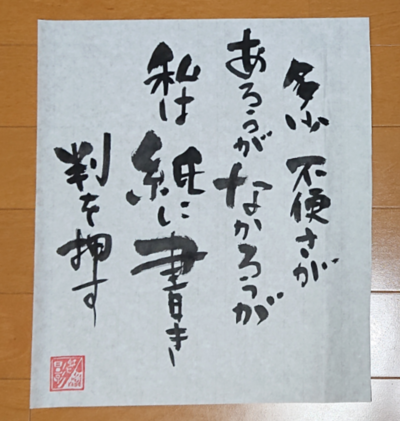 多少 不便さが
あろうが なかろうが
私は 紙に 書き
判を 押す